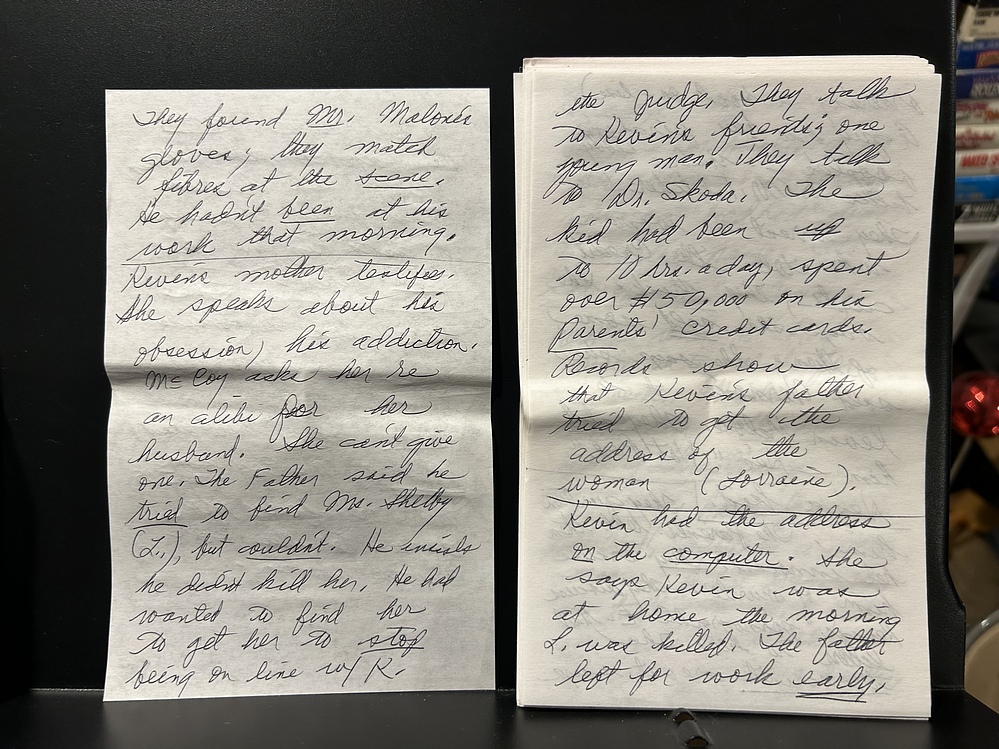 They found Mr. Malone's
gloves; they match
fibres at the scene.
He hadn't been at his
work that morning.
Kevins mother testifies.
She speaks about his
obsession, his addiction.
McCoy asks her re
an alibi for her
husband. She can't give
one. The Father said he
tried to find Ms. Shelby
(L.), but couldn't. He insists
he didn't kill her. He had
wanted to find her
to get her to stop
being on line w/ K.
the judge. They talk
to Kevins friends; one
young man. They talk
to Dr. Skoda. The
kid had been up
to 10 hrs. a day, spent
over $50,000 on his
Parents' credit cards.
Records show
that Kevin's father
tried to get the
address of the
woman (Lorraine).
Kevin had the address
on the computer. She
says Kevin was
at home the morning
L. was killed. The father
left for work early.